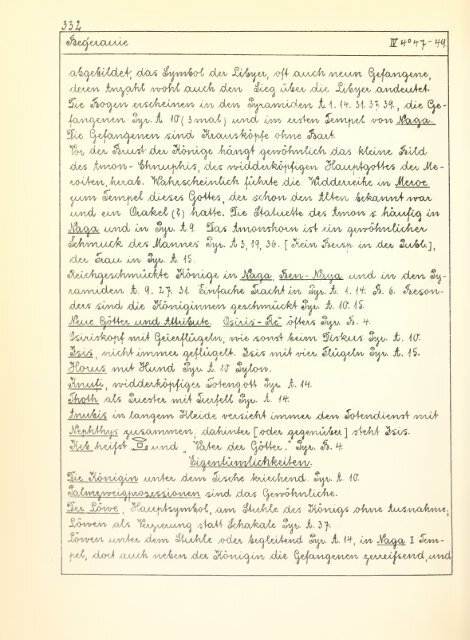 332
Begerauie IV 4° 47-49
abgebildet, das Symbol der Libyer, oft auch neun Gefangene,
deren Anzahl wohl auch den Sieg über die Libyer andeutet.
Die Bogen erscheinen in den Pyramiden A 1. 14. 31. 37. 39., die Ge-
fangenen Pyr. A 10 (3 mal) und im ersten Tempel von Naga.
Die Gefangenen sind Krausköpfe ohne Bart.
Vor der Brust der Könige hängt gewöhnlich das kleine Bild
des Amon-Chnuphis, des widderköpfigen Hauptgottes der Me-
roiten, herab. Wahrscheinlich führte die Widderreihe in Meroe
zum Tempel dieses Gottes, der schon den Alten bekannt war
und ein Orakel (?) hatte. Die Statuette des Amons häufig in
Naga und in Pyr. A 9. Das Amonshorn ist ein gewöhnlicher
Schmuck des Mannes Pyr. A 3, 19, 36. [Kein Beisp. in der Publ.],
der Frau in Pyr. A. 15.
Reichgeschmückte Könige in Naga, Ben-Naga und in den Py-
ramiden A. 9. 27. 31. Einfache Tracht in Pyr. A. 1. 14. B. 6. Beson-
ders sind die Königinnen geschmückt Pyr. A. 10. 15.
Neue Götter und Attribute. Osiris-Re' öfters Pyr. B. 4.
Osiriskopf mit Geierflügeln, wie sonst beim Diskus Pyr. A. 10.
Isis, nicht immer geflügelt. Isis mit vier Flügeln Pyr. A. 15.
Horus mit Hund Pyr. A. 10 Pylon.
Knufi, widderköpfiger Totengott Pyr. A. 14.
Thoth als Priester mit Tierfell Pyr. A. 14.
Anubis in langem Kleide versieht immer den Totendienst mit
Nephthys zusammen. dahinter [oder gegenüber] steht Isis.
Keb heifst und „Vater der Götter." Pyr. B. 4.
Eigentümlichkeiten.
Die Königin unter dem Tische kriechend Pyr. A. 10.
Palmzweigprozessionen sind das Gewöhnliche.
Der Löwe, Hauptsymbol, am Stuhle des Königs ohne Ausnahme,
Löwen als Verzierung statt Schakale Pyr. A. 37.
Löwen unter dem Stuhle oder begleitend Pyr. A. 14, in Naga I Tem-
pel, dort auch neben der Königin die Gefangenen zerreifsend, und